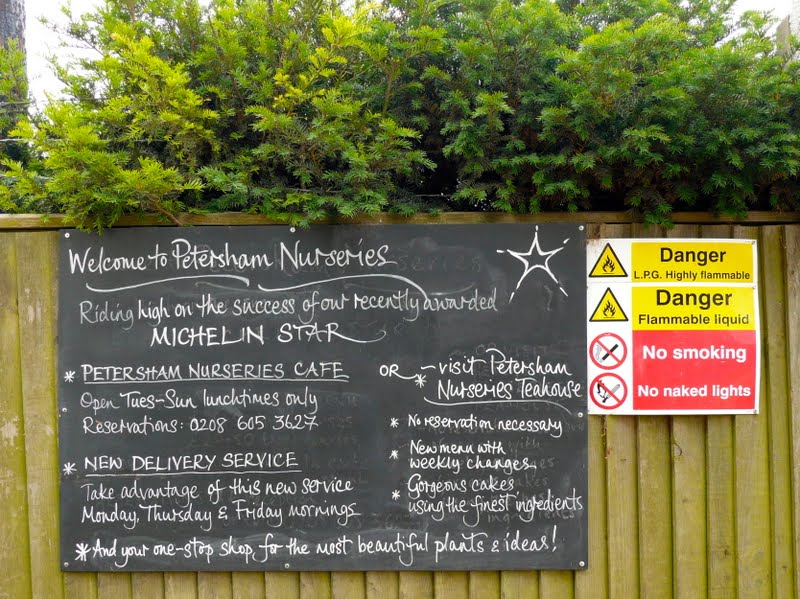 Welcome to Petersham Nurseries
Riding high on the success of our recently awarded
MICHELIN STAR
* PETERSHAM NURSERIES CAFE
Open Tues-Sun lunchtimes only
Reservations: 0208 605 3627
* NEW DELIVERY SERVICE
Take advantage of this new service
Monday, Thursday & Friday mornings
OR
* visit Petersham
Nurseries Teahouse
* No reservation necessary
* New menu with
weekly changes
* Gorgeous cakes
using the finest ingredients
* And your one-stop shop for the most beautiful plants & ideas!
Danger
L.P.G. Highly flammable
Danger
Flammable liquid
No smoking
No naked lights